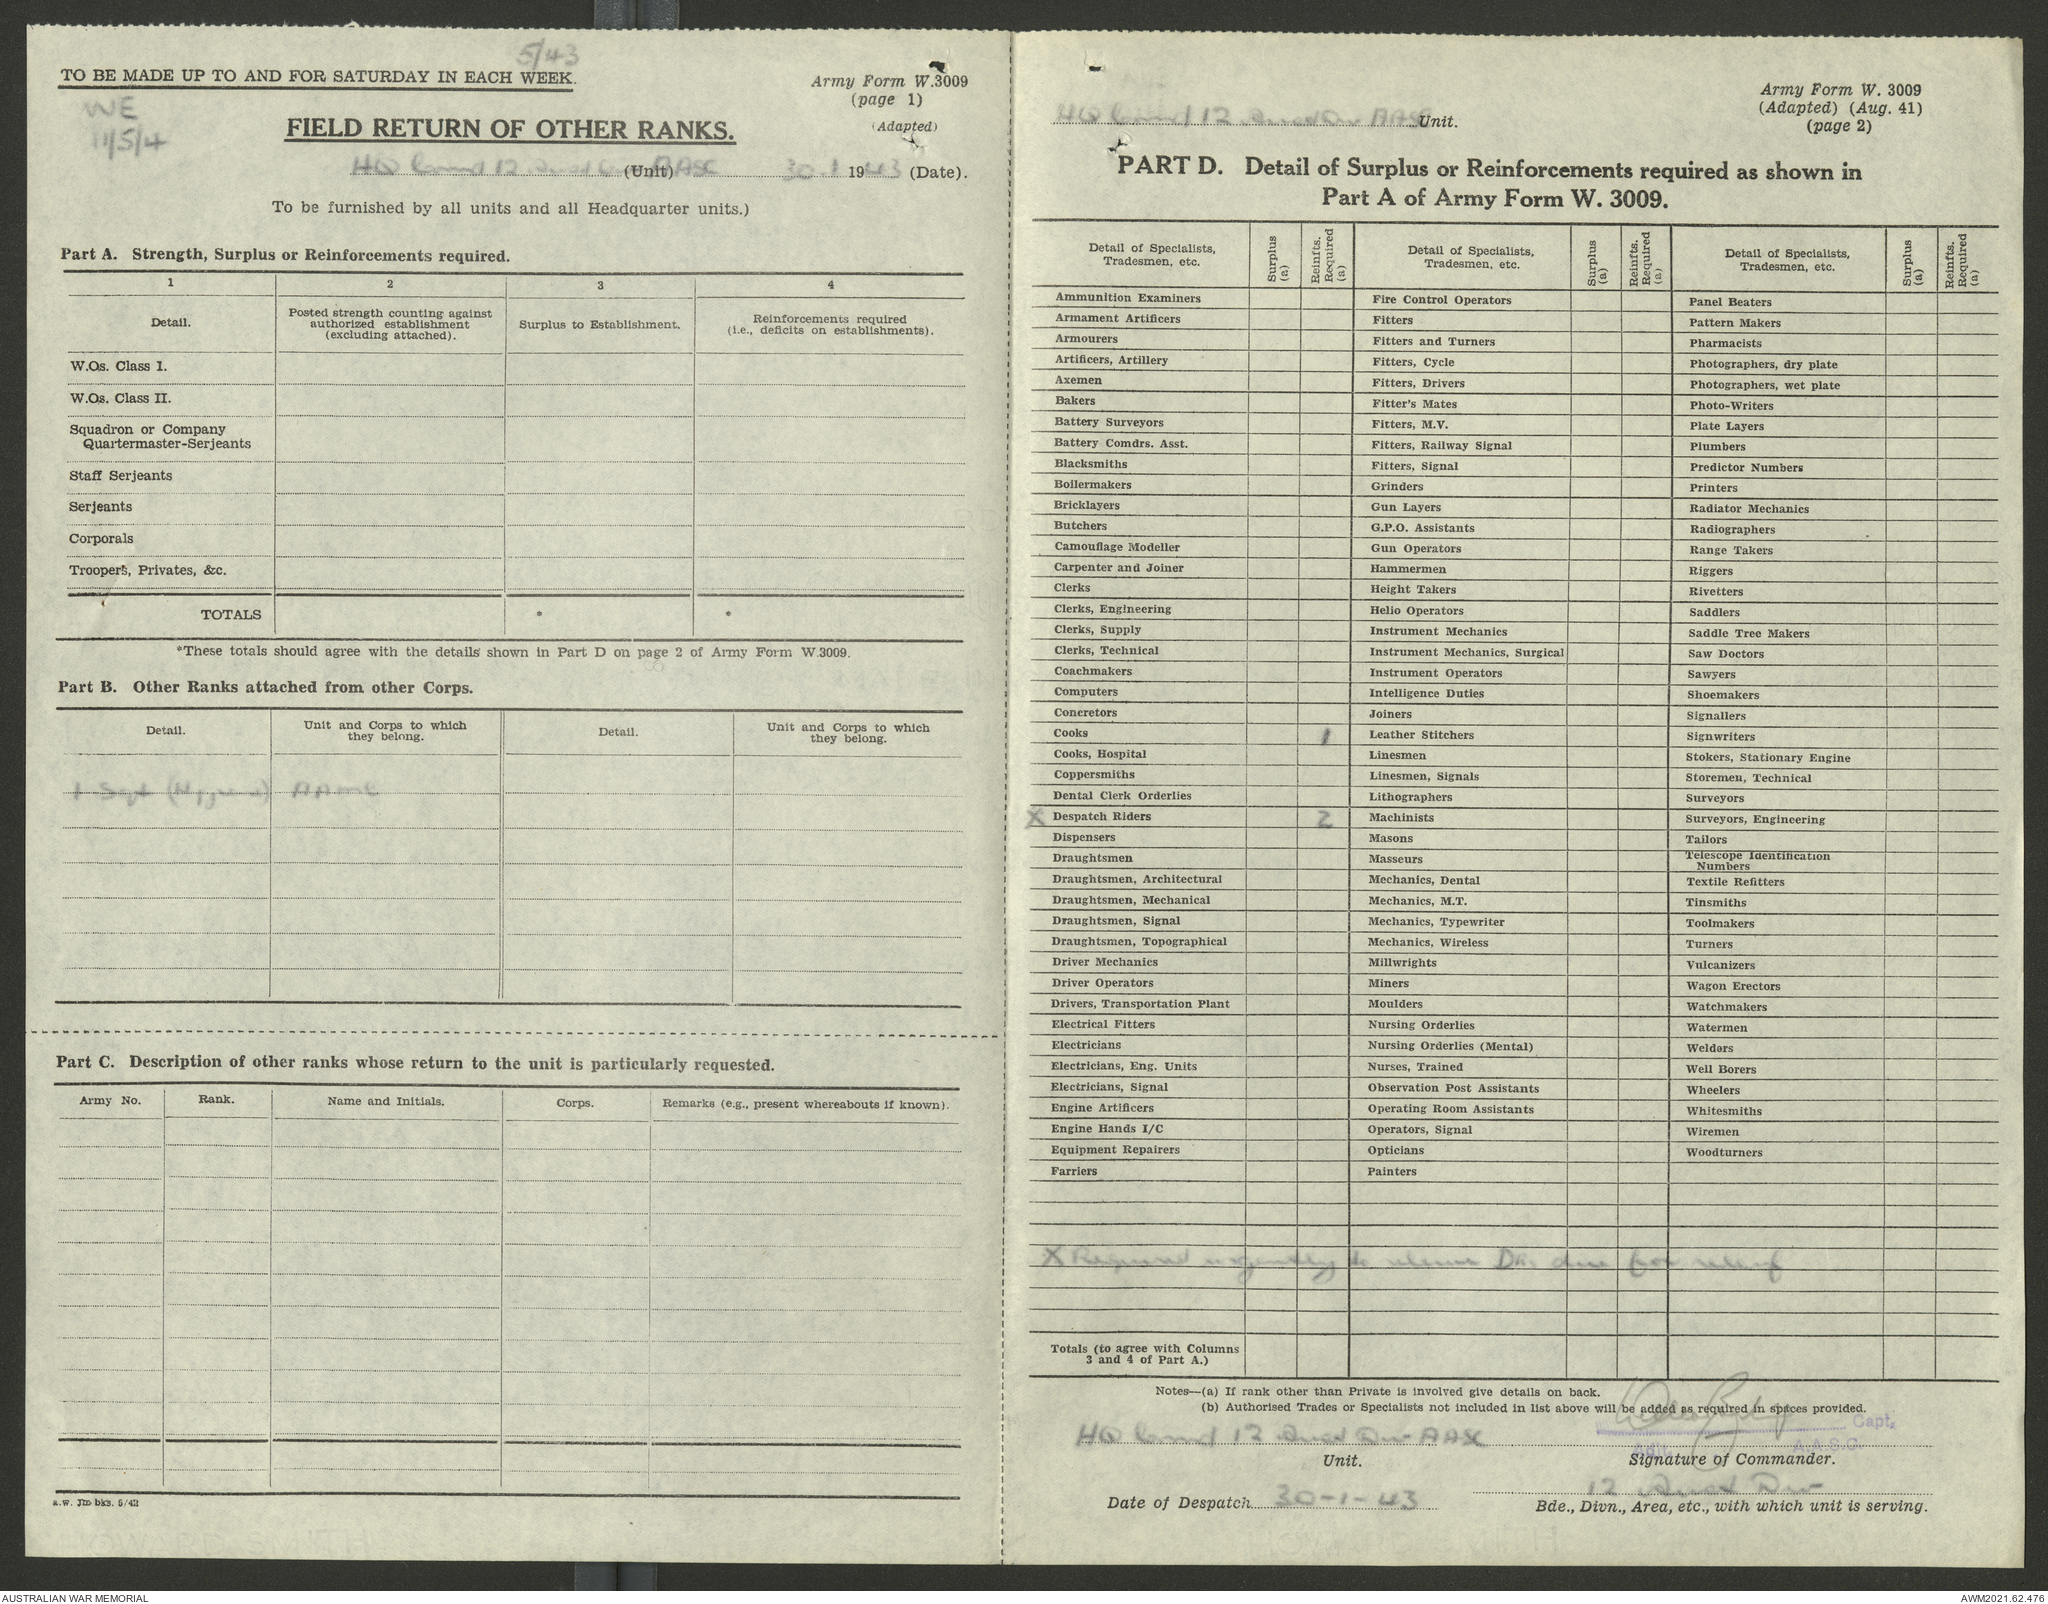 5/43
TO BE MADE UP TO AND FOR SATURDAY IN EACH WEEK.
Army Form W.3009
(page 1)
(Adapted)
WE
11/5/4
FIELD RETURN OF OTHER RANKS.
HQ Comd 12 Aust Div AASC (Unit) 30.1 1943 (Date).
To be furnished by all units and all Headquarter units.)
Part A. Strength, Surplus or Reinforcements required.
1 2 3 4
Detail.
Posted strength counting against authorized establishment (excluding attached).
Surplus to Establishment.
Reinforcements required (i.e., deficits on establishments).
W.Os. Class I.
W.Os. Class II.
Squadron or Company
Quartermaster-Serjeants
Staff Serjeants
Serjeants
Corporals
Troopers, Privates, &c.
TOTALS * *
*These totals should agree with the details shown in Part D on page 2 of Army Form W.3009.
Part B. Other Ranks attached from other Corps.
Detail. Unit and Corps to which they belong. Detail. Unit and Corps to which they belong.
1 Sgt (Hygiene) AAMC
Part C. Description of other ranks whose return to the unit is particularly requested.
Army No. Rank. Name and Initials. Corps. Remarks (e.g., present whereabouts if known).
a.w. Jm bks. 5/42
Army Form W. 3009
(Adapted) (Aug. 41)
(page 2)
HQ Comd 12 Aust Div AASC Unit.
PART D. Detail of Surplus or Reinforcements required as shown in
Part A of Army Form W. 3009.
Detail of Specialists, Tradesmen, etc. Surplus (a) Reinfts. Required (a) Detail of Specialists, Tradesmen, etc. Surplus (a) Reinfts. Required (a) Detail of Specialists, Tradesmen, etc. Surplus (a) Reinfts. Required (a)
Ammunition Examiners Fire Control Operators Panel Beaters
Armament Artificers Fitters Pattern Makers
Armourers Fitters and Turners Pharmacists
Artificers, Artillery Fitters, Cycle Photographers, dry plate
Axemen Fitters, Drivers Photographers, wet plate
Bakers Fitter's Mates Photo-Writers
Battery Surveyors Fitters, M.V. Plate Layers
Battery Comdrs. Asst. Fitters, Railway Signal Plumbers
Blacksmiths Fitters, Signal Predictor Numbers
Boilermakers Grinders Printers
Bricklayers Gun Layers Radiator Mechanics
Butchers G.P.O. Assistants Radiographers
Camouflage Modeller Gun Operators Range Takers
Carpenter and Joiner Hammermen Riggers
Clerks Height Takers Rivetters
Clerks, Engineering Helio Operators Saddlers
Clerks, Supply Instrument Mechanics Saddle Tree Makers
Clerks, Technical Instrument Mechanics, Surgical Saw Doctors
Coachmakers Instrument Operators Sawyers
Computers Intelligence Duties Shoemakers
Concretors Joiners Signallers
Cooks 1 Leather Stitchers Signwriters
Cooks, Hospital Linesmen Stokers, Stationary Engine
Coppersmiths Linesmen, Signals Storemen, Technical
Dental Clerk Orderlies Lithographers Surveyors
X Despatch Riders 2 Machinists Surveyors, Engineering
Dispensers Masons Tailors
Draughtsmen Masseurs Telescope Identification Numbers
Draughtsmen, Architectural Mechanics, Dental Textile Refitters
Draughtsmen, Mechanical Mechanics, M.T. Tinsmiths
Draughtsmen, Signal Mechanics, Typewriter Toolmakers
Draughtsmen, Topographical Mechanics, Wireless Turners
Driver Mechanics Millwrights Vulcanizers
Driver Operators Miners Wagon Erectors
Drivers, Transportation Plant Moulders Watchmakers
Electrical Fitters Nursing Orderlies Watermen
Electricians Nursing Orderlies (Mental) Welders
Electricians, Eng. Units Nurses, Trained Well Borers
Electricians, Signal Observation Post Assistants Wheelers
Engine Artificers Operating Room Assistants Whitesmiths
Engine Hands I/C Operators, Signal Wiremen
Equipment Repairers Opticians Woodturners
Farriers Painters
X Required urgently to release DRs due for relief
Totals (to agree with Columns
3 and 4 of Part A.)
Notes—(a) If rank other than Private is involved give details on back.
(b) Authorised Trades or Specialists not included in list above will be added as required in spaces provided.
Capt.
HQ Comd 12 Aust Div AASC Adjt. A.A.S.C.
Unit. Signature of Commander.
12 Aust Div
Date of Despatch 30-1-43 Bde., Divn., Area, etc., with which unit is serving.
AUSTRALIAN WAR MEMORIAL AWM2021.62.476